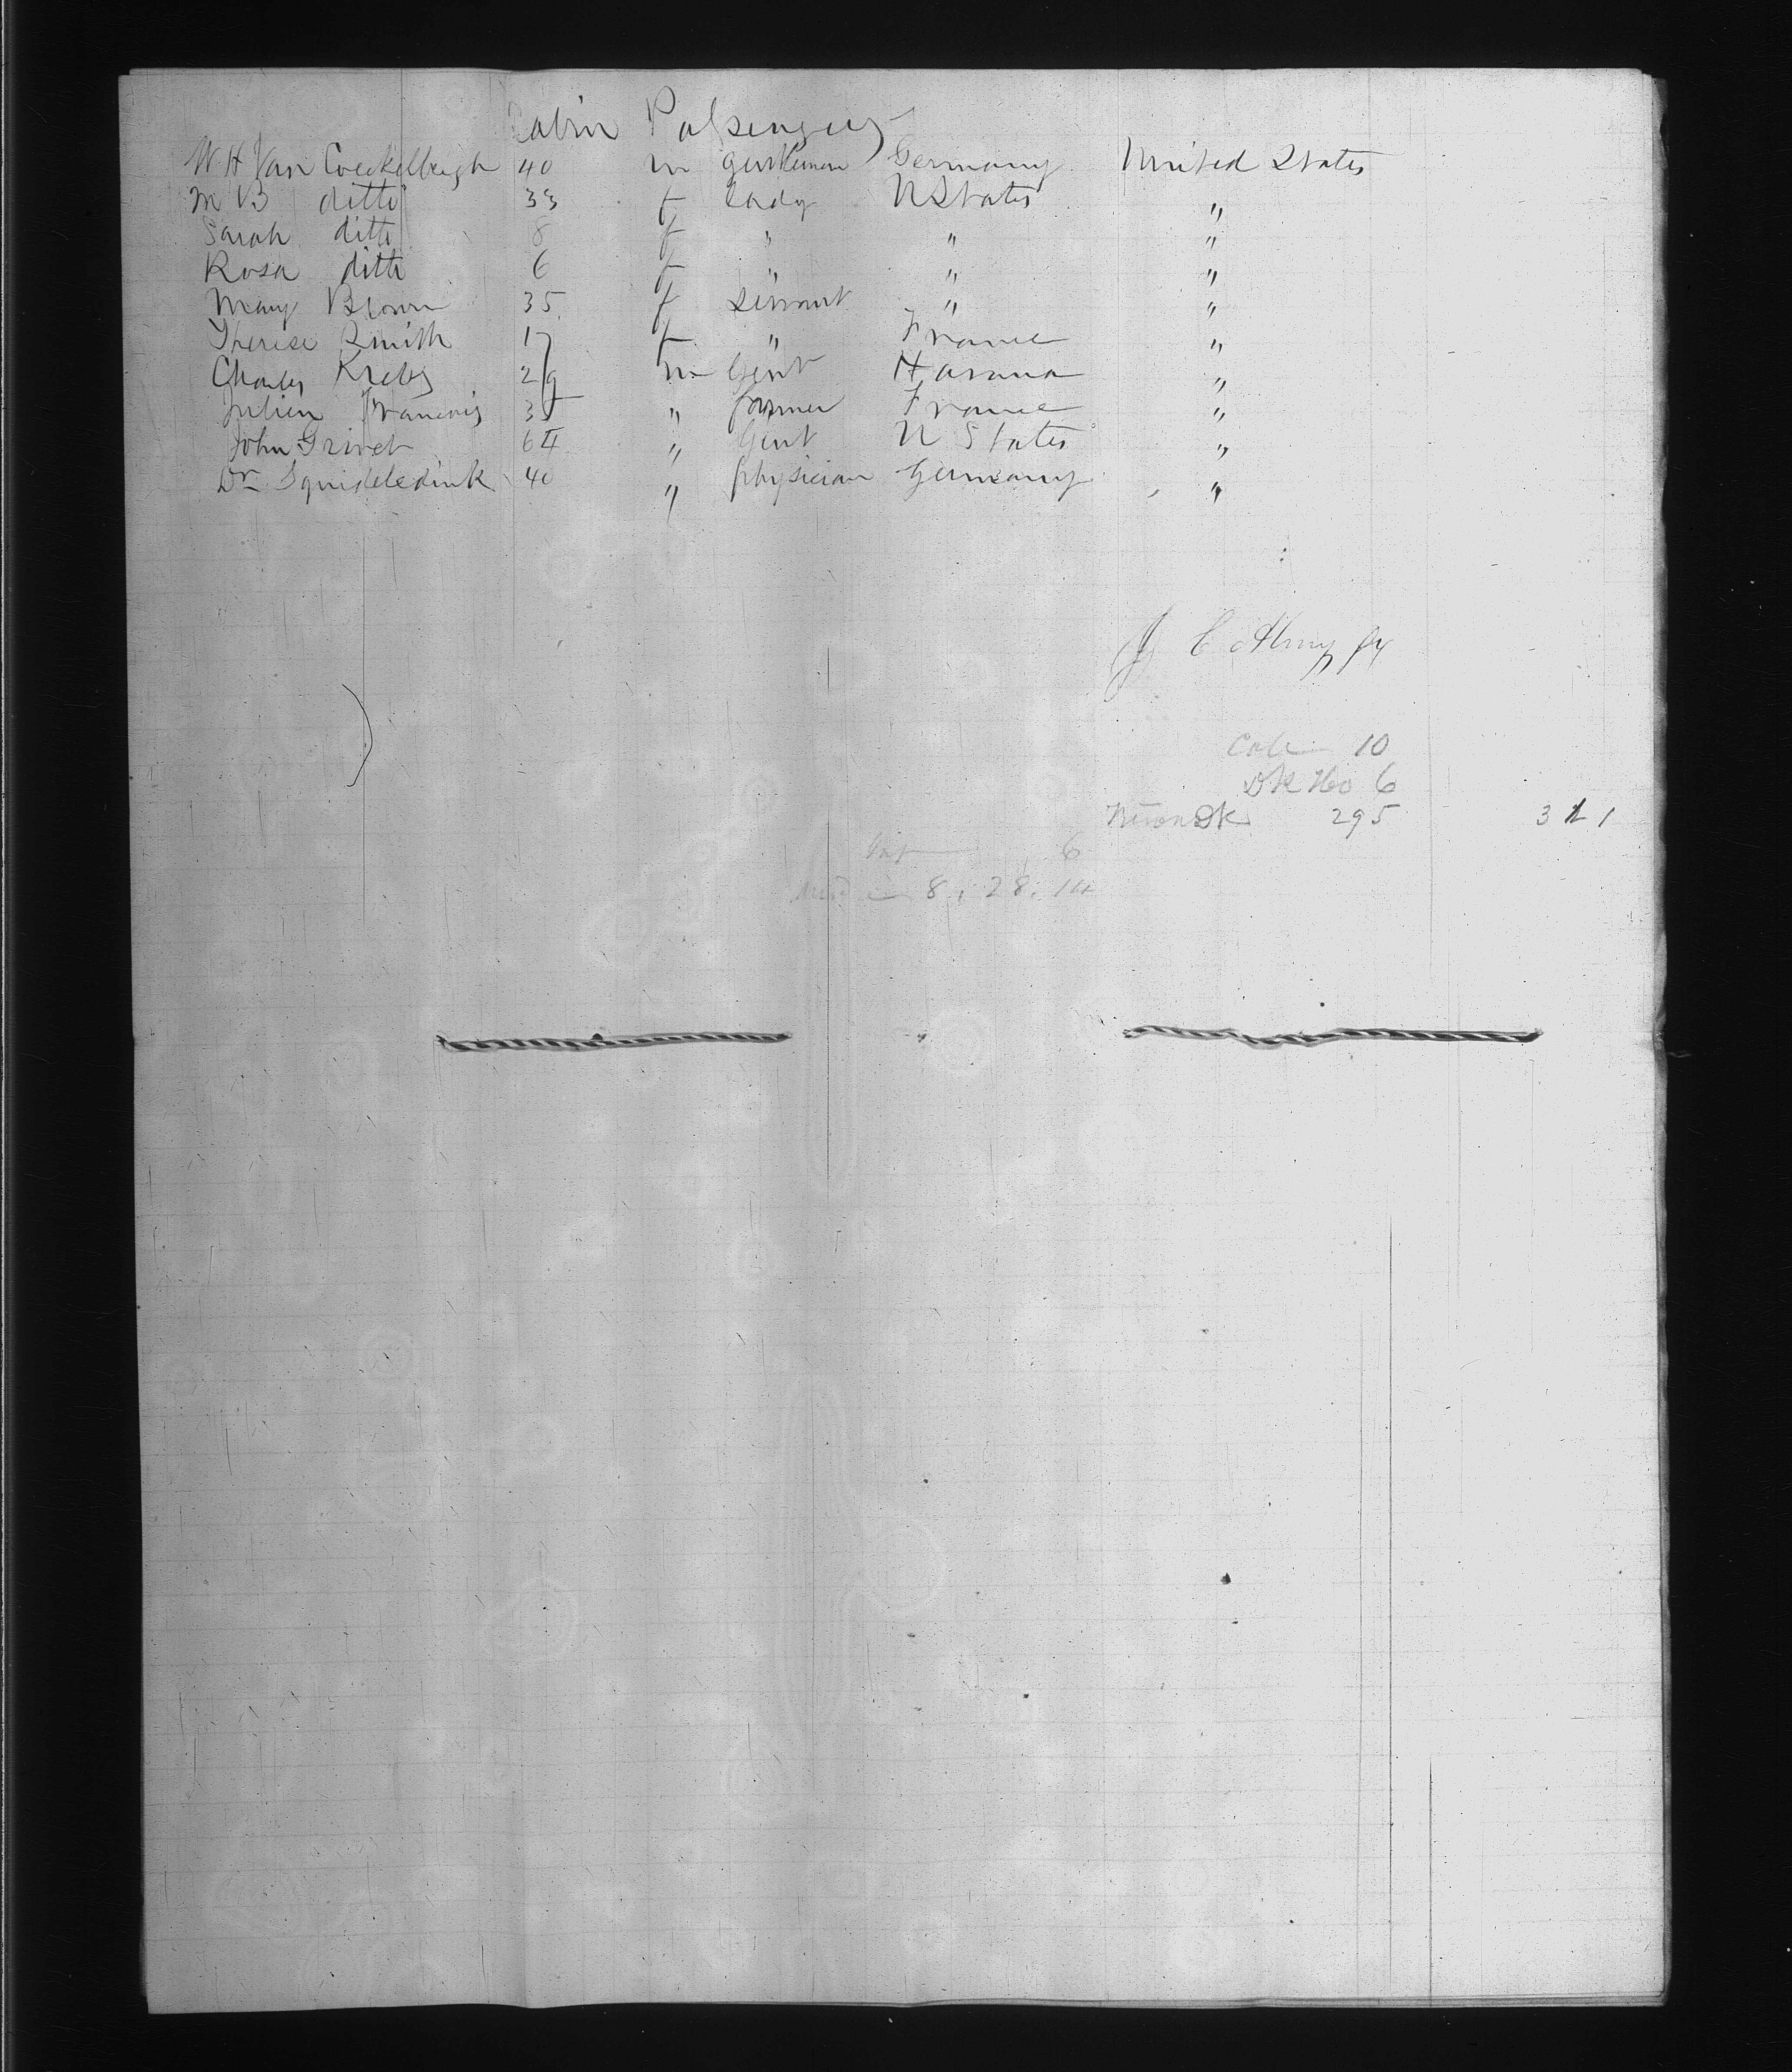 Cabin Passengers
W H Van Coeckelbergh 40 m gentleman Germany United States
M B ditto 33 f lady U States "
Sarah ditto 8 f " " "
Rosa ditto 6 f " " "
Mary Brown 35 f servant " "
Therese Smith 17 f " France "
Charles Krebs 29 m Gent Havana "
Julien Francois 35 " farmer France "
John Grivet 64 " Gent U States "
Dr 40 " physician Germany "
J C Almy
10
DK Ho 6
295 321
6
8, 28, 14